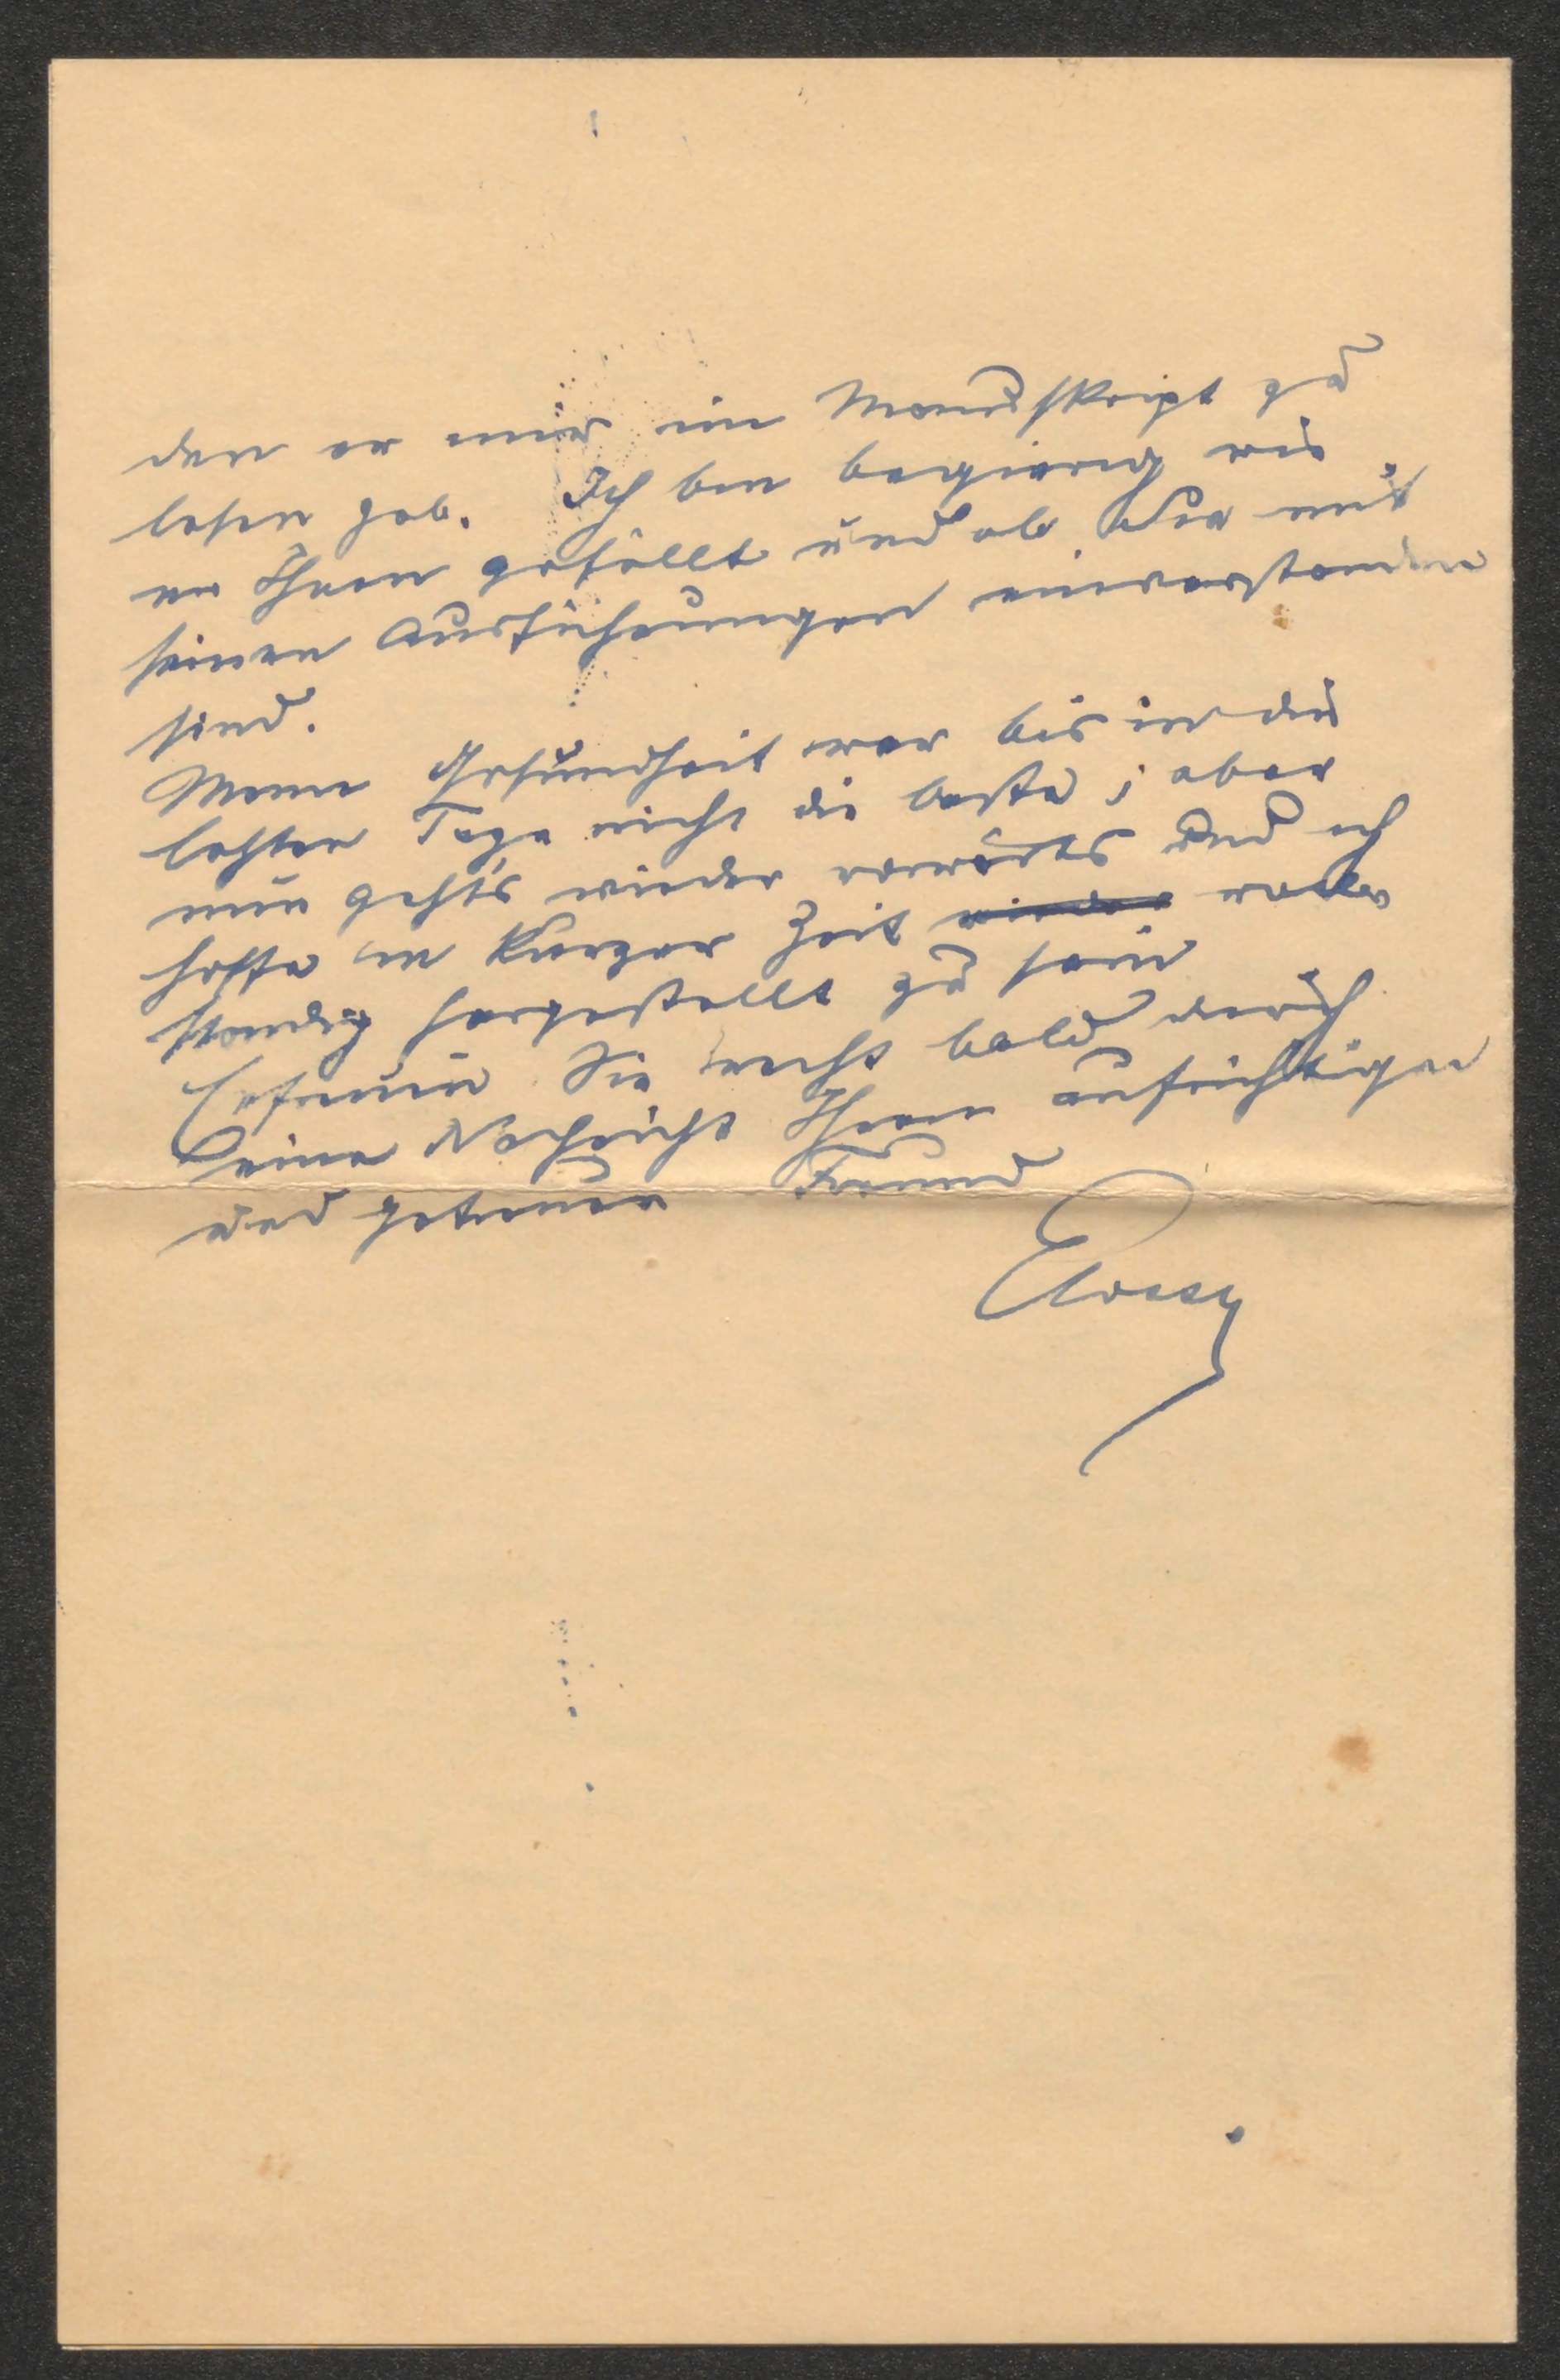 den er mir im Manuskript zu
lesen gab. Ich bin begierig wie
er Ihnen gefällt und ob Sie mit
seinen Ausführungen einverstanden
sind.
Meine Gesundheit war bis in die
letzten Tage nicht die beste; aber
nun geht's wieder vorwärts und ich
hoffe in kurzer Zeit wieder voll
ständig hergestellt zu sein
Erfreuen Sie recht bald durch
eine Nachricht Ihren aufrichtigen
und getreuen Freund